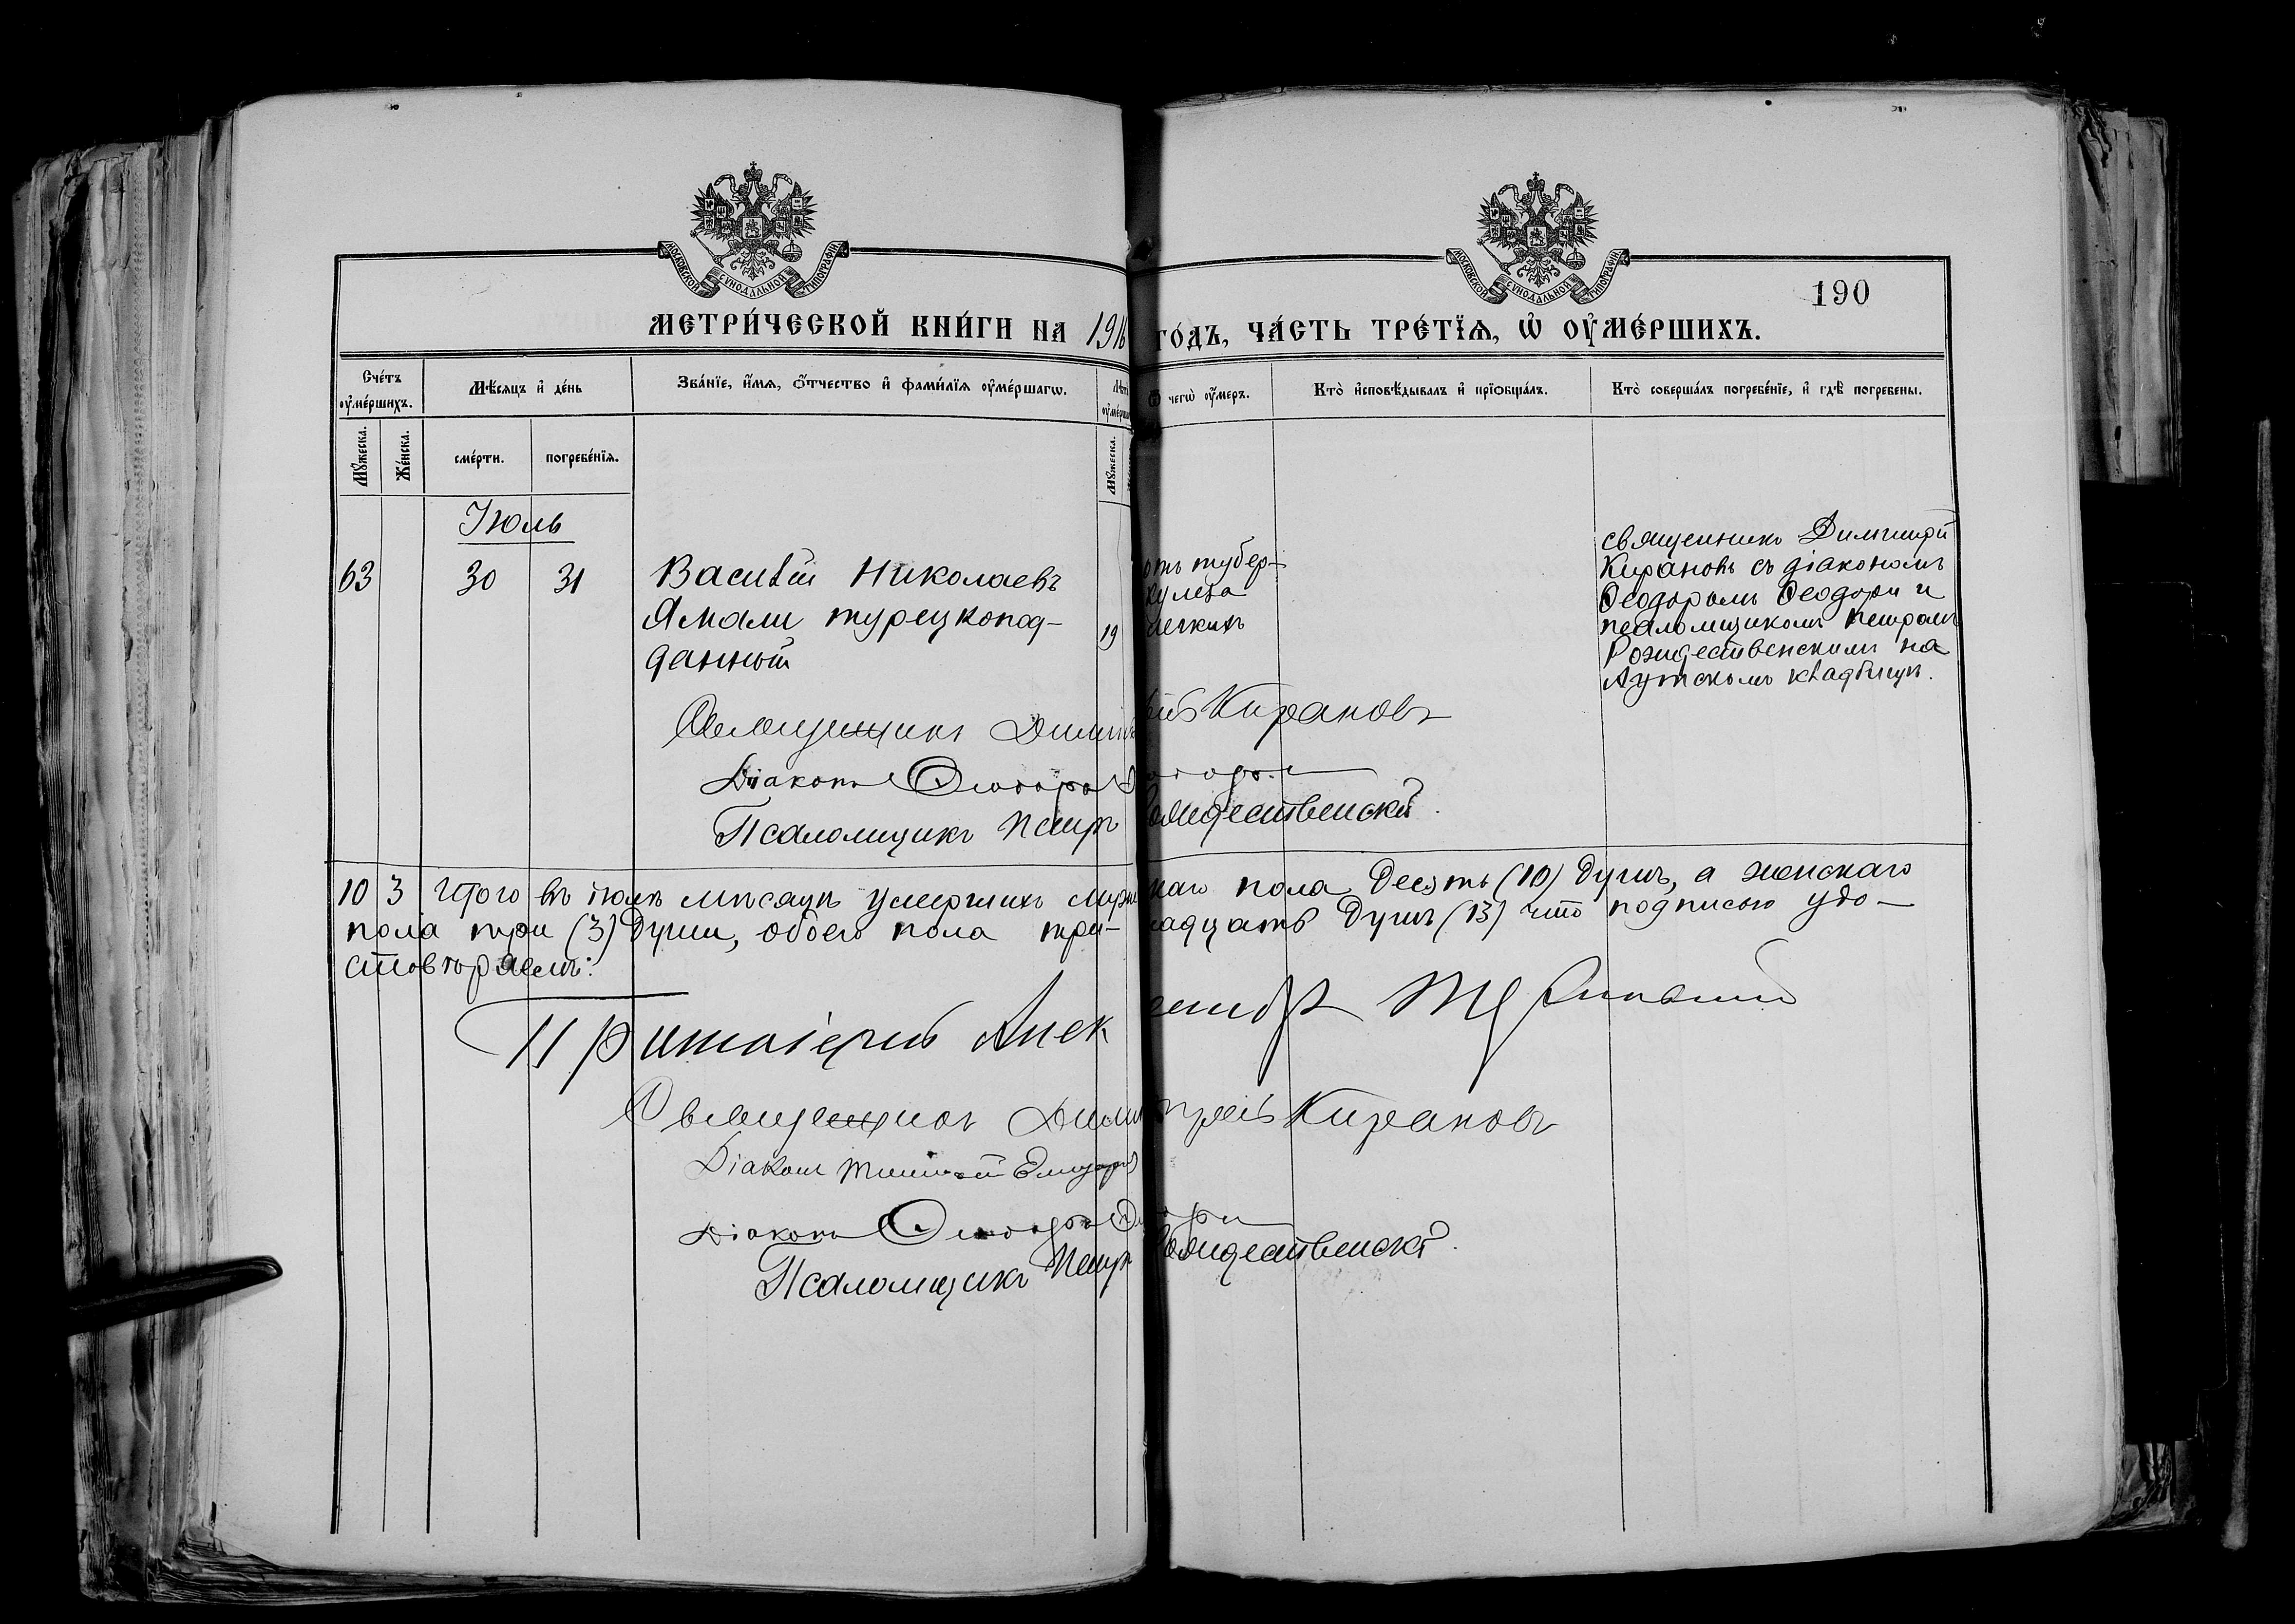 МОСКОВСКОЙ СѴНОДАЛЬНОЙ ТИПОГРАФІИ
МОСКОВСКОЙ СѴНОДАЛЬНОЙ ТИПОГРАФІИ
190
МЕТРИ́ЧЕСКОЙ КНИ́ГИ НА 1916 ГО́ДЪ, ЧА́СТЬ ТРЕ́ТЇѦ, Ѡ҆ ОУ҆МЕ́РШИХЪ.
Сче́тъ оу҆ме́ршихъ.
Мѣ́сяцъ и҆ де́нь
Зва́нїе, и҆́мѧ, ѻ҆́тчество и҆ фами́лїѧ оу҆ме́ршагѡ.
Ѿ чегѡ̀ оу҆́меръ.
Кто̀ и҆сповѣ́дывалъ и҆ прїѻбща́лъ.
Кто̀ соверша́лъ погребе́нїе, и҆ гдѣ̀ погребены.
Мꙋ́жеска.
Же́нска.
сме́рти.
погребе́нїѧ.
Мꙋ́жеска.
Іюль
63
30
31
Василій Николаевъ
Ямали турецкопод-
данный
19
отъ тубер-
кулеза
легкихъ
священникъ Димитрій
Кирановъ съ діакономъ
Ѳеодоромъ Ѳеодори и
псаломщикомъ Петромъ
Рождественскимъ на
Аутскомъ кладбищѣ.
Священникъ Димитрій Кирановъ
Діаконъ Ѳеодоръ Ѳеодори
Псаломщикъ Петръ Рождественскій.
10 3 Итого въ іюлѣ мѣсяцѣ умершихъ мужскаго пола десять (10) душъ, а женскаго
пола три (3) души, обоего пола три-надцать душъ (13) что подписью удо-
стовѣряемъ:
Протоіерей Александръ
Священникъ Димитрій Кирановъ
Діаконъ
Діаконъ Ѳеодоръ Ѳеодори
Псаломщикъ Петръ Рождественскій.